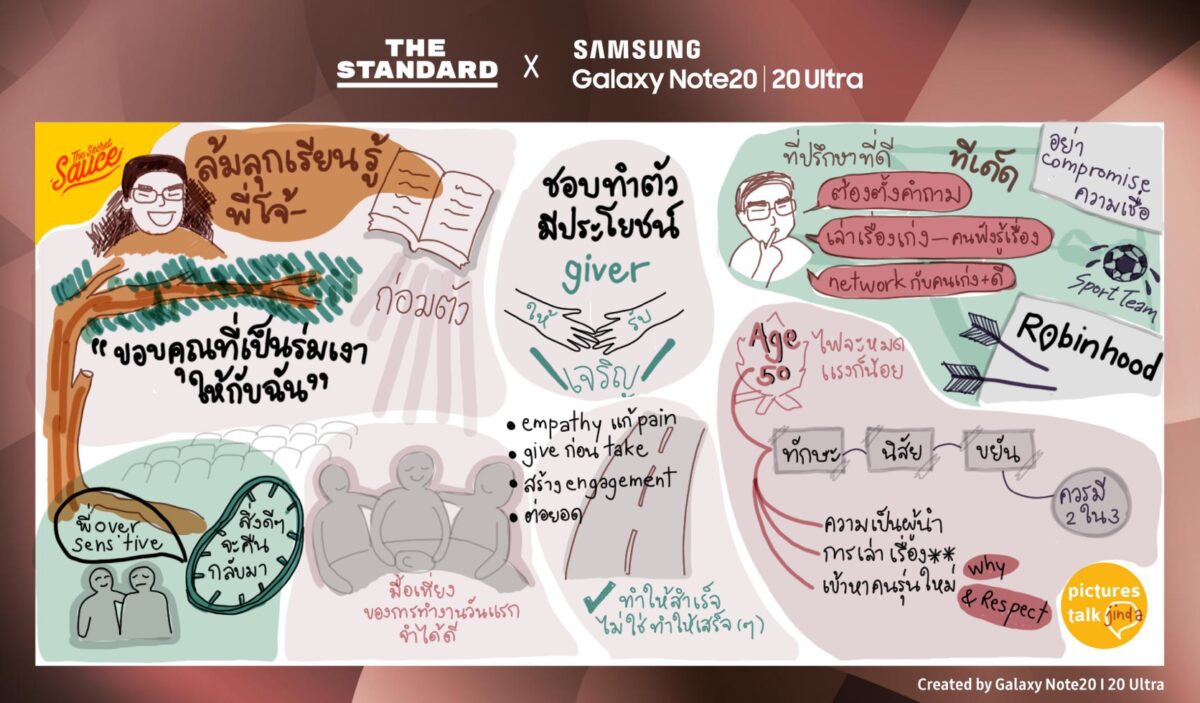 THE
STANDARD
X
SAMSUNG
Galaxy Note20 | 20 Ultra
The Secret
Sauce
ล้มลุกเรียนรู้
พี่โจ้-
ถ่อมตัว
“ขอบคุณที่เป็นร่มเงา
ให้กับฉัน”
พี่ over
sensitive
สิ่งดีๆ
จะคืน
กลับมา
มื้อเที่ยง
ของการทำงานวันแรก
จำได้ดี
ชอบทำตัว
มีประโยชน์
giver
ให้
รับ
เจริญ
• empathy แก้ pain
• give ก่อน take
• สร้าง engagement
• ต่อยอด
✓ ทำให้สำเร็จ
ไม่ใช่ ทำให้เสร็จ (ๆ)
ที่ปรึกษาที่ดี
ทีเด็ด
ต้องตั้งคำถาม
เล่าเรื่องเก่ง–คนฟังรู้เรื่อง
network กับคนเก่ง+ดี
อย่า
compromise
ความเชื่อ
Sport Team
Robinhood
Age
50
ไฟจะหมด
แรงก็น้อย
ทักษะ
นิสัย
ขยัน
ควรมี
2 ใน 3
ความเป็นผู้นำ
การเล่าเรื่อง**
เข้าหาคนรุ่นใหม่
why
& Respect
pictures
talk jinda
Created by Galaxy Note20 I 20 Ultra